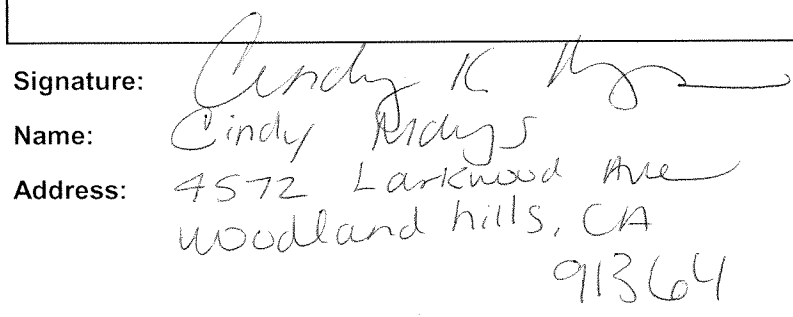 Signature: Cindy K
Name: Cindy
Address: 4572 Larkwood Ave
Woodland hills, CA
91364